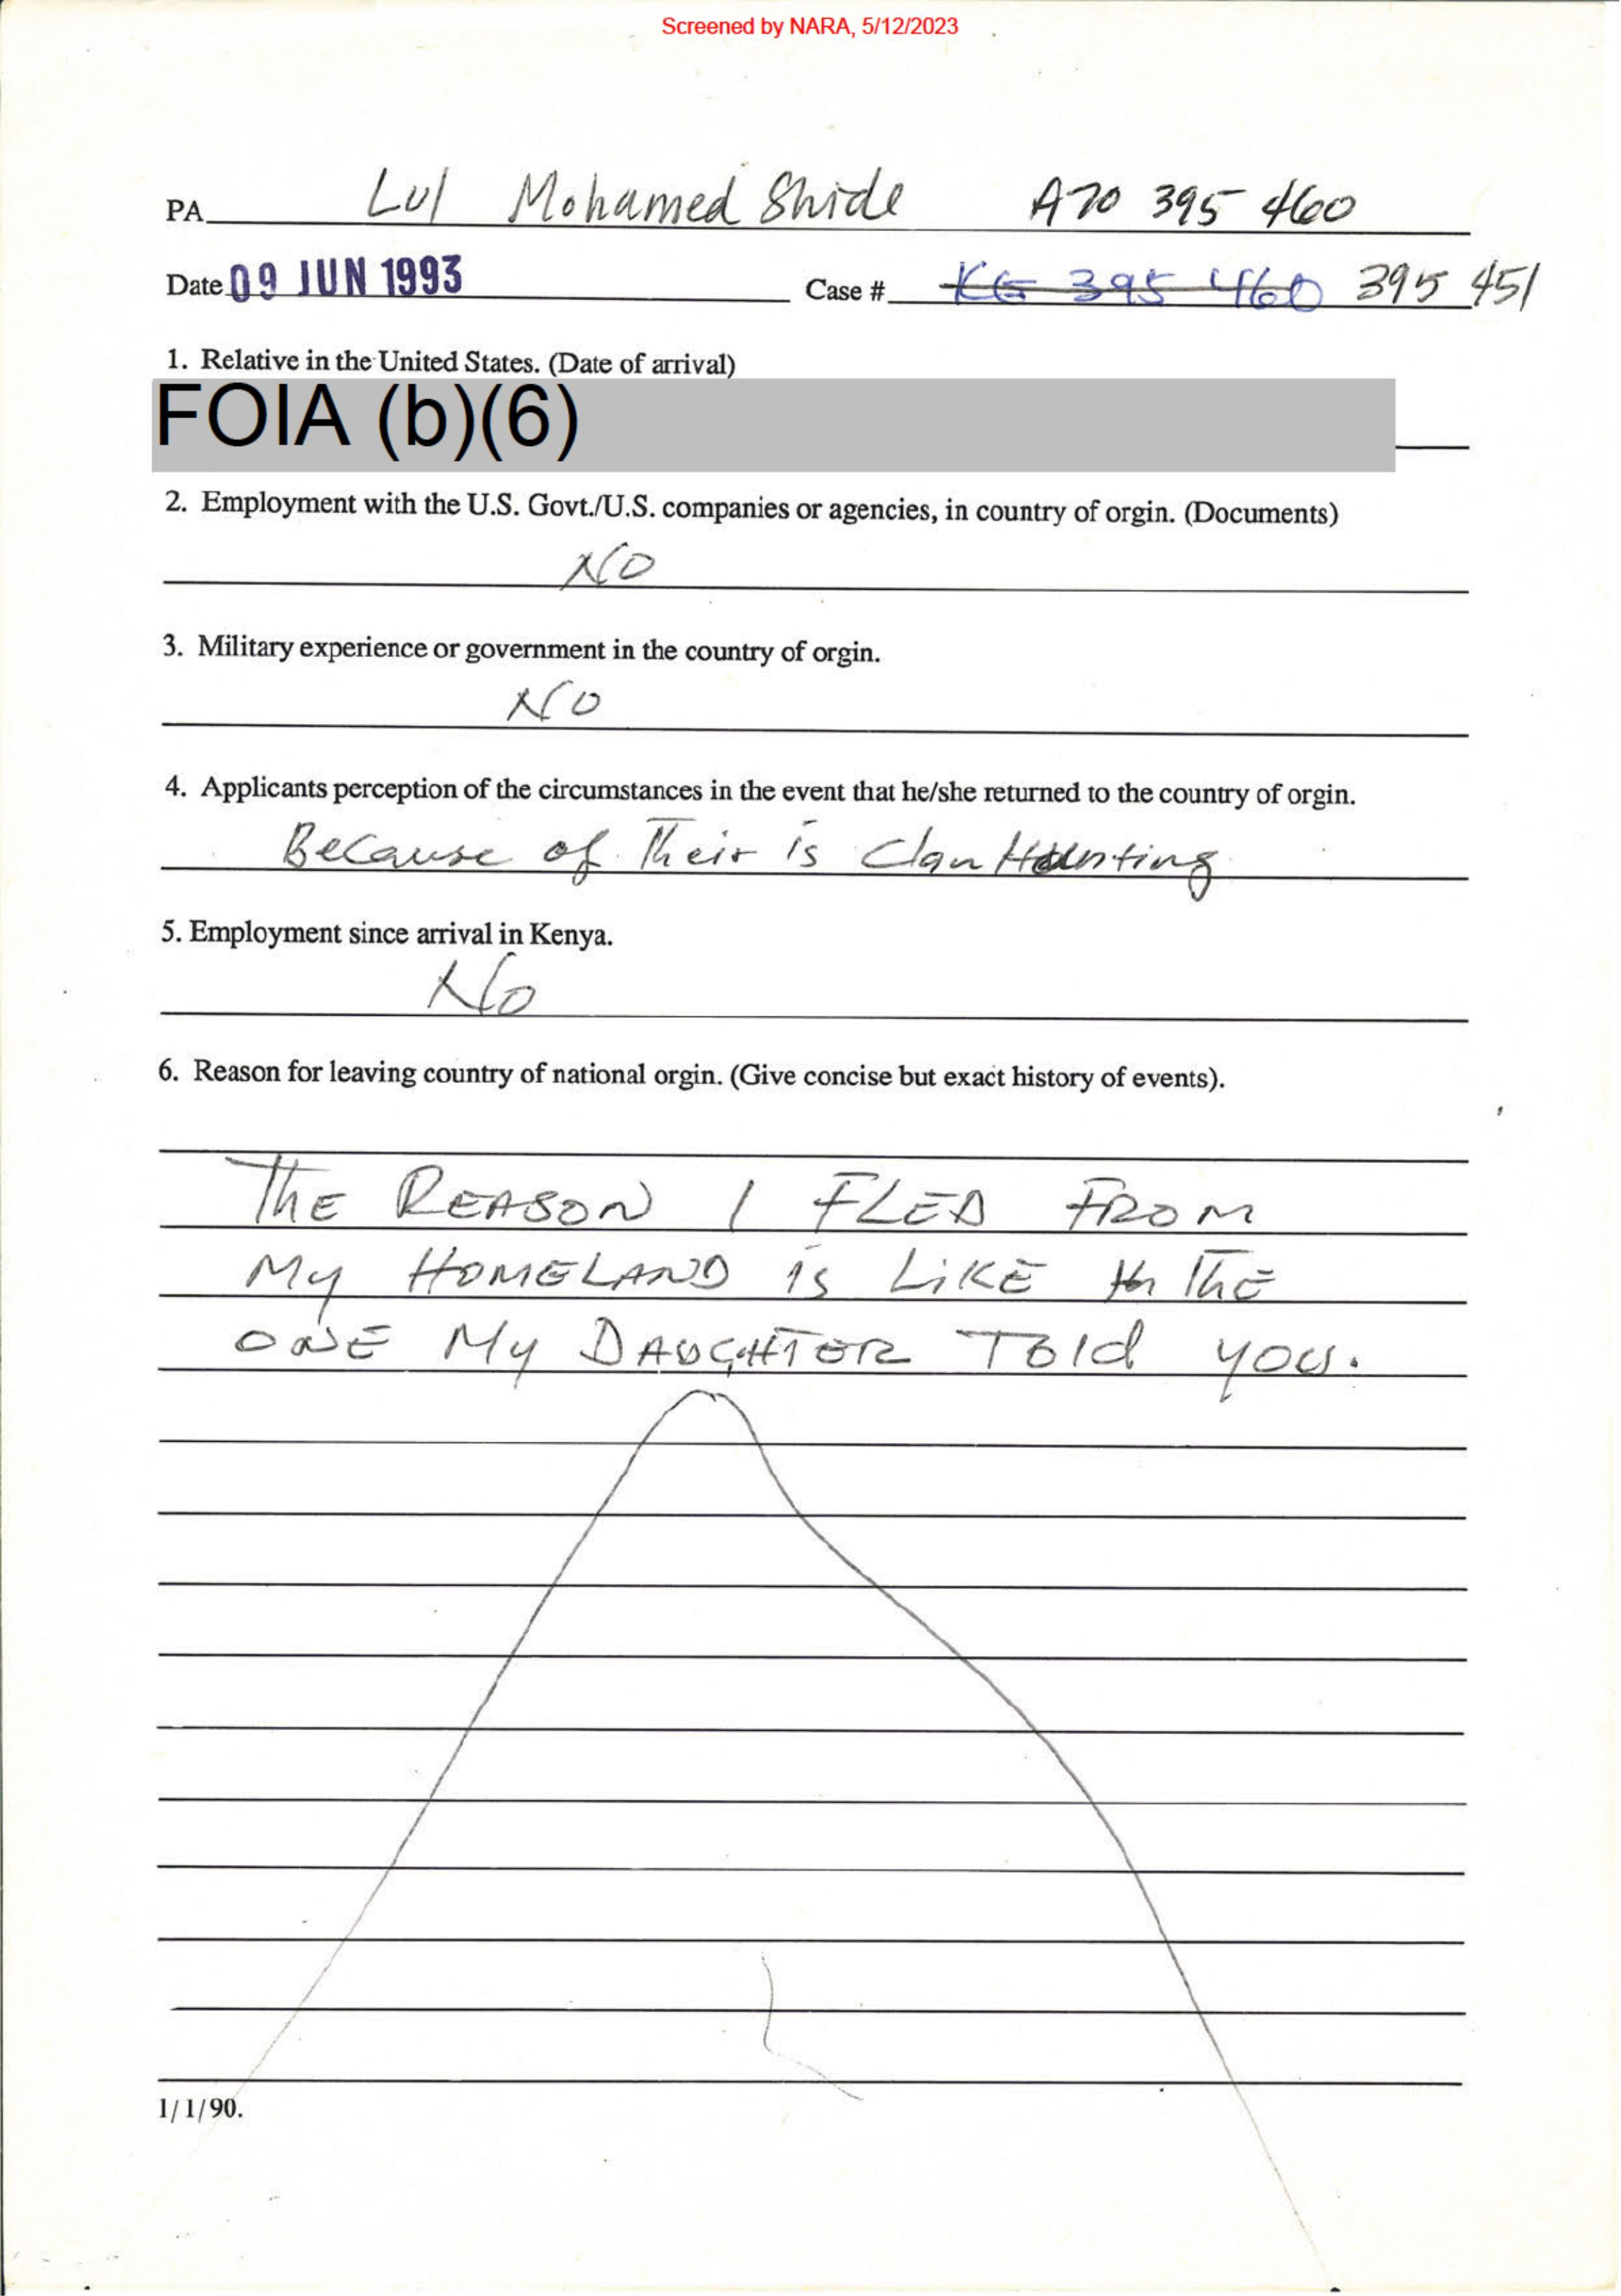 Screened by NARA, 5/12/2023
PA Lul Mohamed Shide A70 395 460
Date 09 JUN 1993 Case # KE 395 460 395 451
1. Relative in the United States. (Date of arrival)
FOIA (b)(6)
2. Employment with the U.S. Govt./U.S. companies or agencies, in country of orgin. (Documents)
NO
3. Military experience or government in the country of orgin.
NO
4. Applicants perception of the circumstances in the event that he/she returned to the country of orgin.
Because of Their is Clan Hunting
5. Employment since arrival in Kenya.
No
6. Reason for leaving country of national orgin. (Give concise but exact history of events).
THE REASON I FLED FROM
My HOMELAND is LiKE THE
ONE My DAUGHTER Told you.
1/1/90.